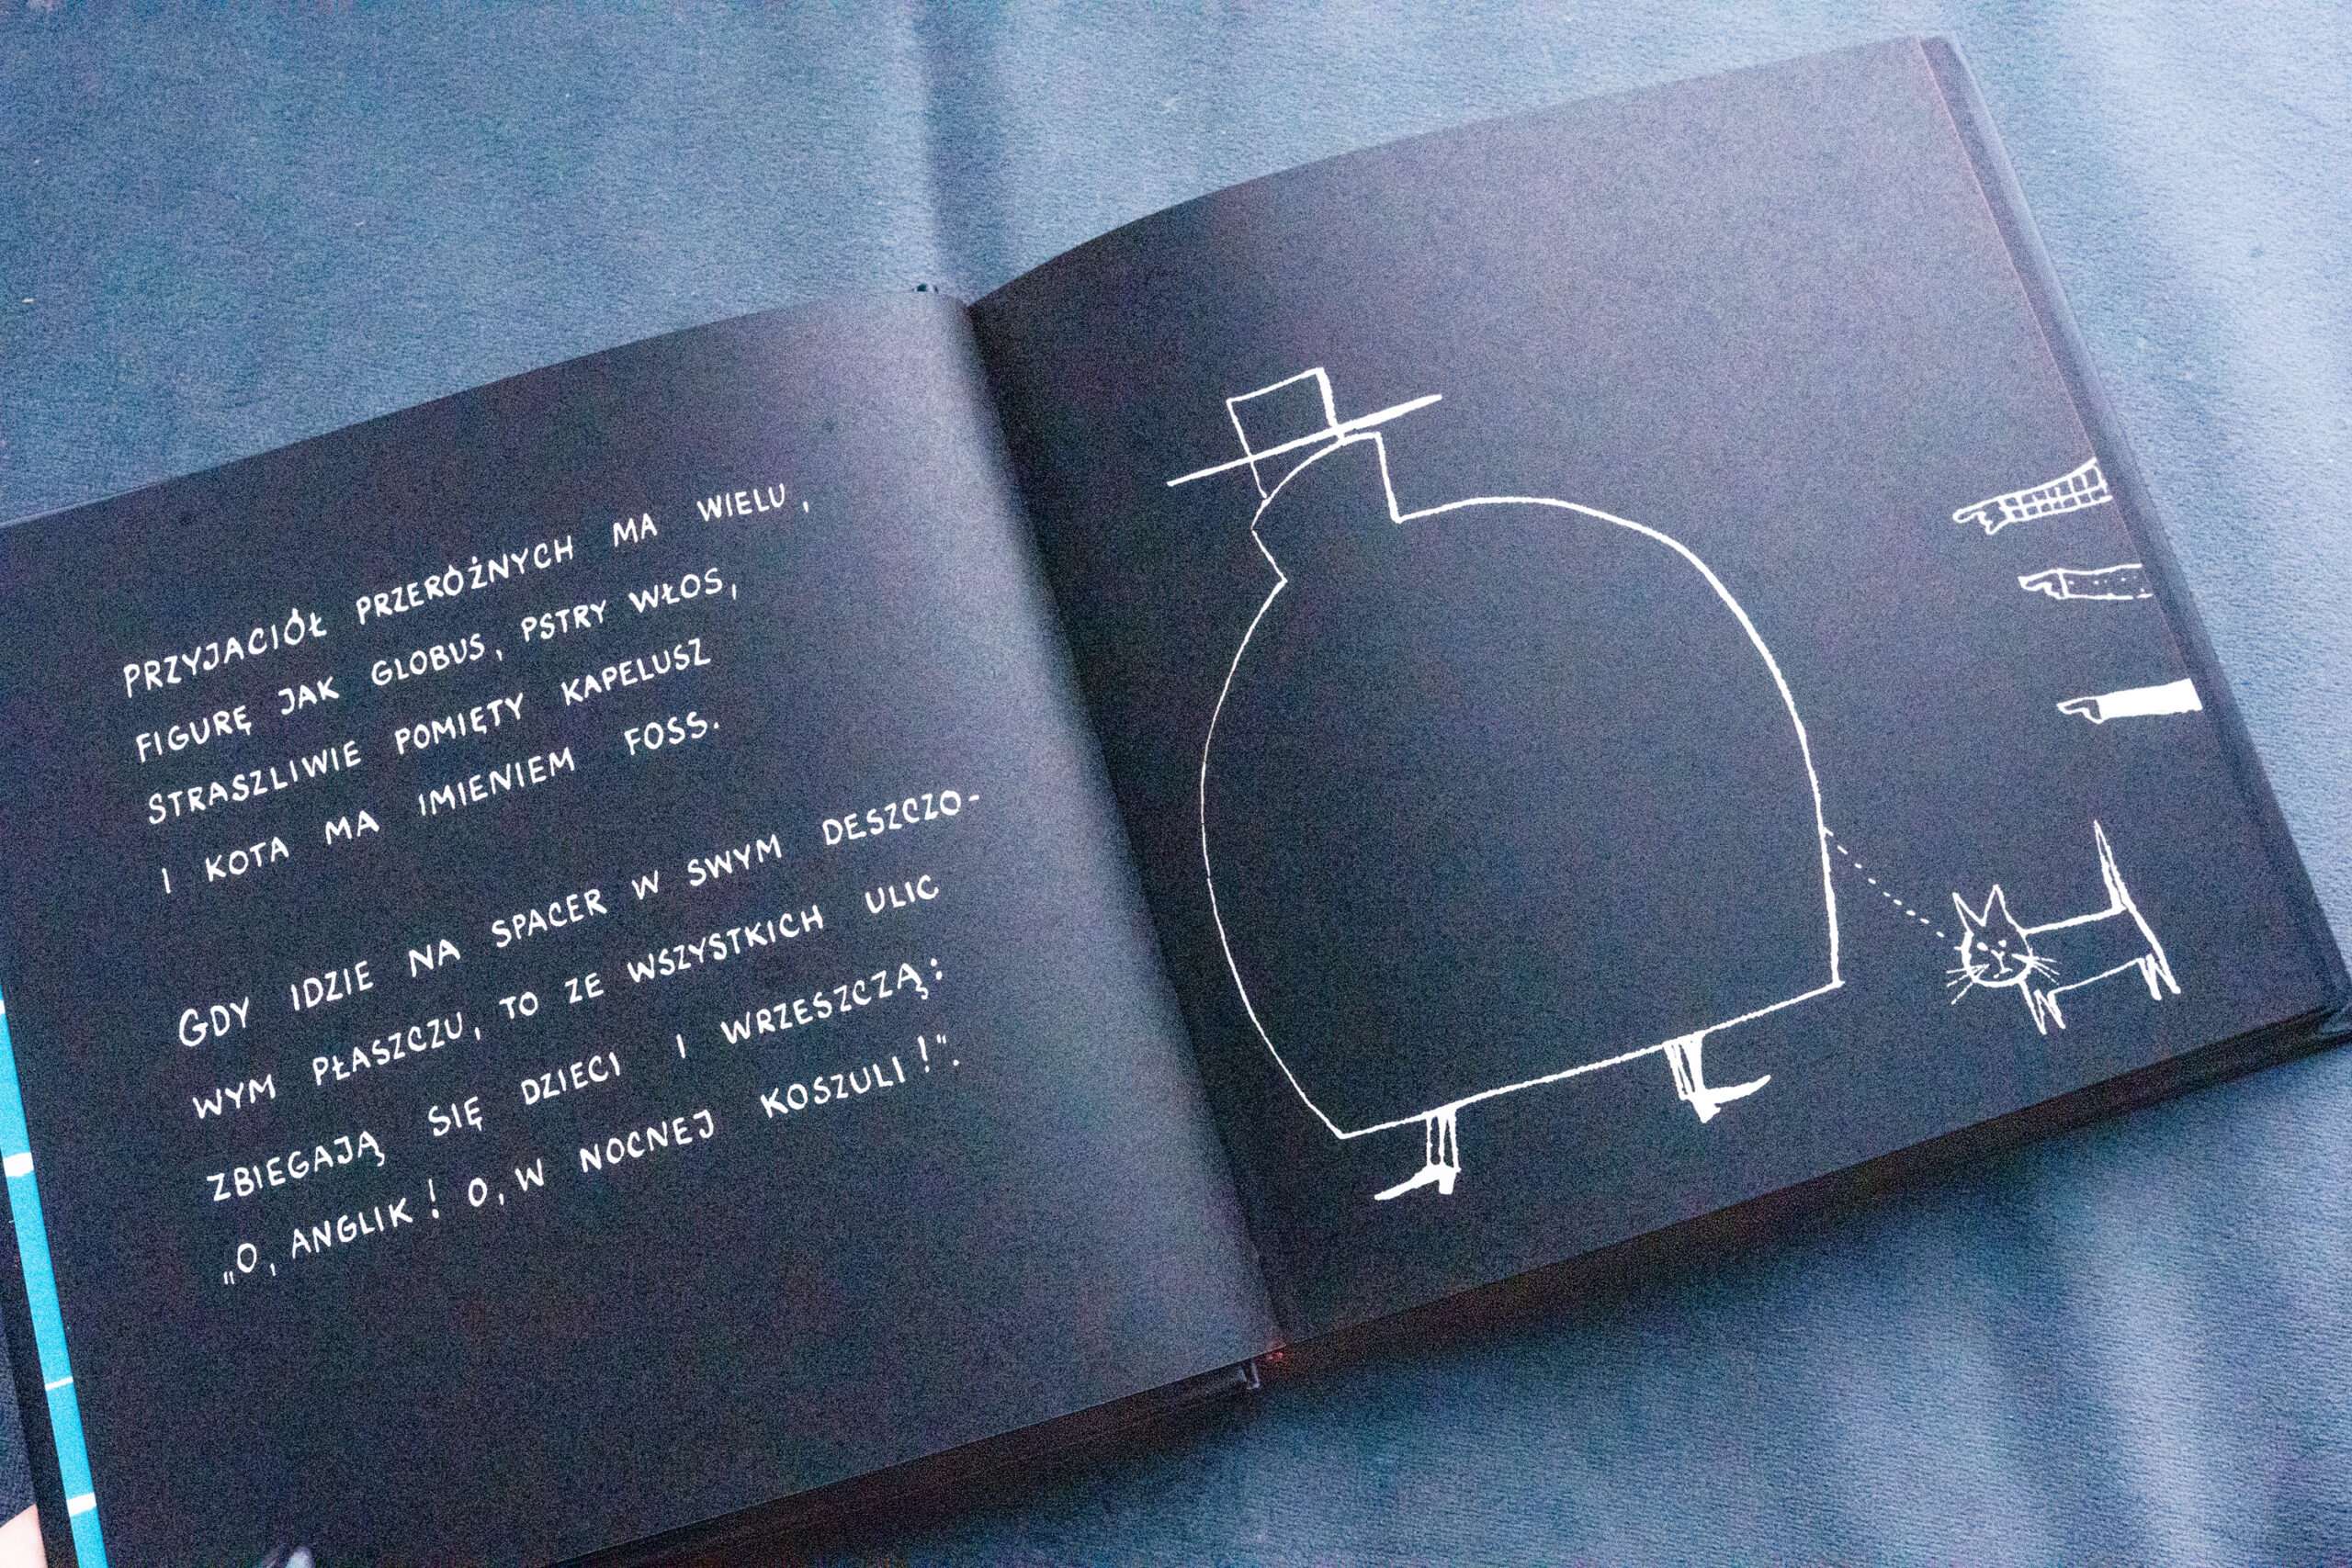 PRZYJACIÓŁ PRZERÓŻNYCH MA WIELU,
FIGURĘ JAK GLOBUS, PSTRY WŁOS,
STRASZLIWIE POMIĘTY KAPELUSZ
I KOTA MA IMIENIEM FOSS.
GDY IDZIE NA SPACER W SWYM DESZCZO-
WYM PŁASZCZU, TO ZE WSZYSTKICH ULIC
ZBIEGAJĄ SIĘ DZIECI I WRZESZCZĄ:
„O, ANGLIK! O, W NOCNEJ KOSZULI!".